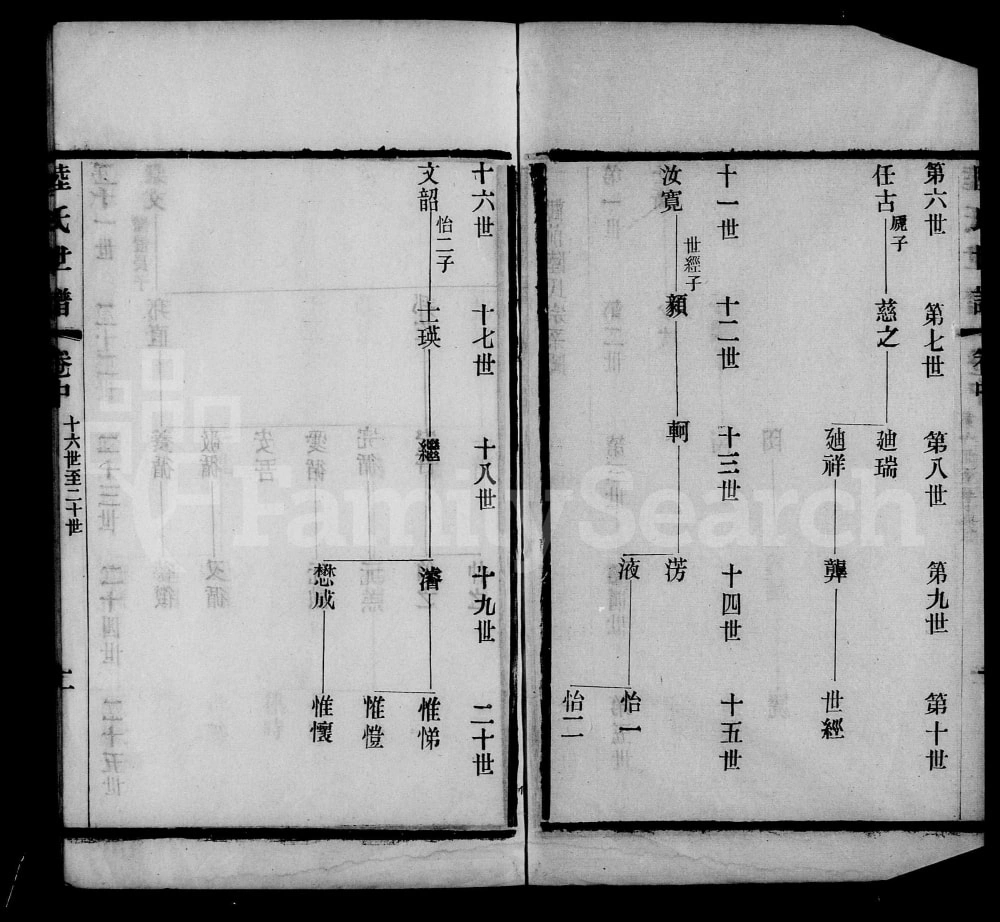 第六世 第七世 第八世 第九世 第十世
任古 屍子 慈之 廸瑞
廸祥 龏 世經
十一世 十二世 十三世 十四世 十五世
汝寛 世經子 顙 軻 淓
液 怡一
怡二
十六世 十七世 十八世 十九世 二十世
文韶 怡二子 士瑛 繼 濬 惟悌
惟愷
懋成 惟懷
陸氏世譜 卷中 十六世至二十世
FamilySearch